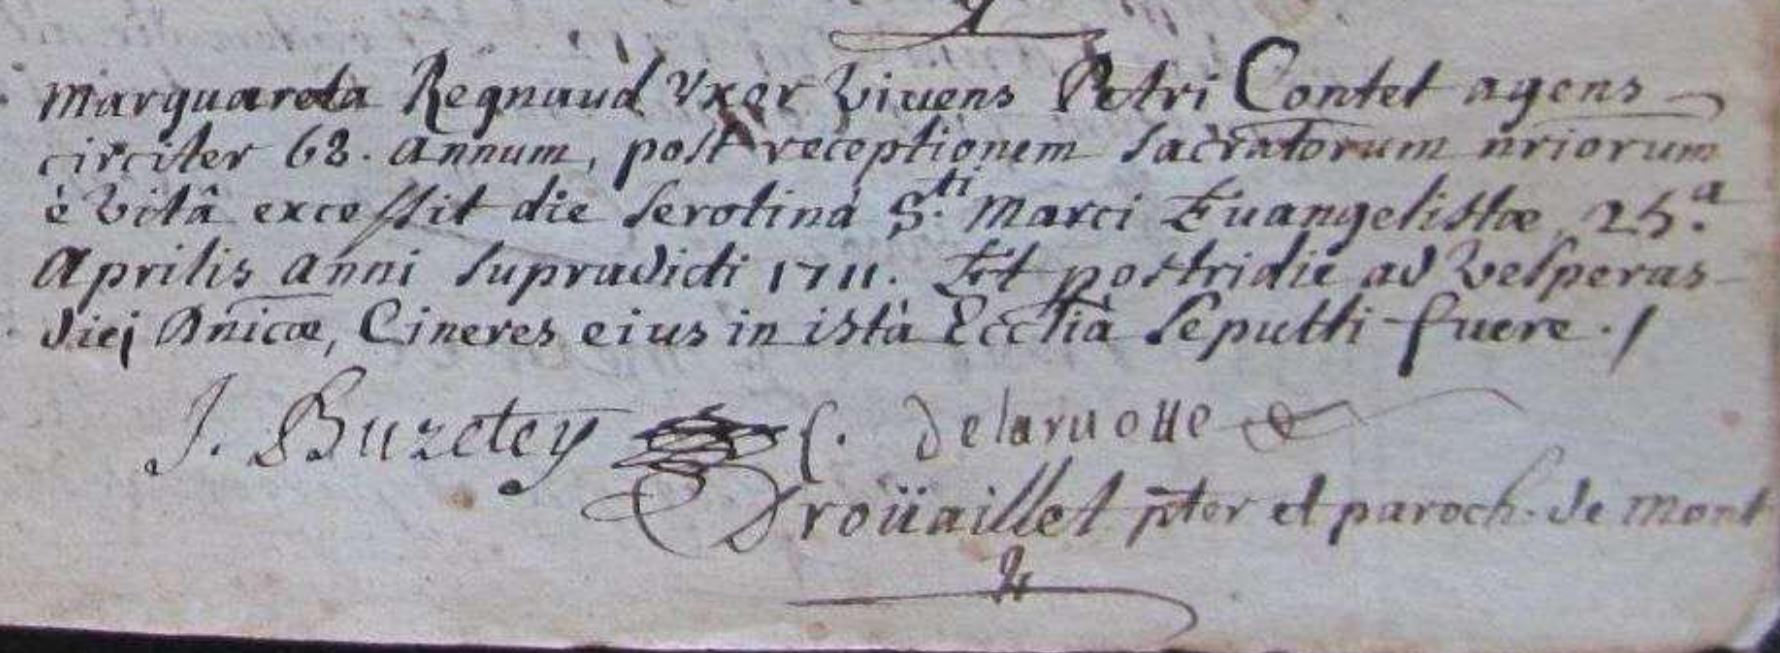 Marguareta Regnaud Vxor Viuens Petri Contet agens
circiter 68. annum, post receptionem Sacratorum nriorum
è Vitâ excessit die serotina S.ti Marci Euangelistæ 25.a
Aprilis anni supradicti 1711. Et postridie ad Vesperas
diej Dnicæ, Cineres eius in istà Ecclia Sepulti fuere ./
J. Buzetey C. Delaruolle
Droüaillet pter et paroch. de Mont